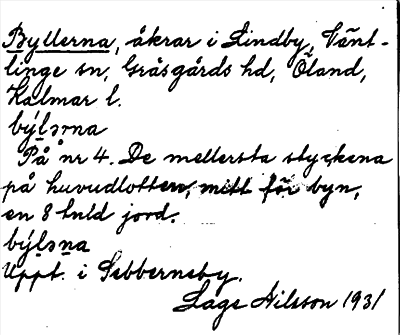 Byllerna, åkrar i Lindby, Vänt-
linge sn, Gräsgårds hd, Öland,
Kalmar l.
býlərna
På nr 4. De mellersta styckena
på huvudlotten, mitt för byn,
en 8 tnld jord.
býləna
Uppt. i Sebberneby.
Lage Nilsson 1931